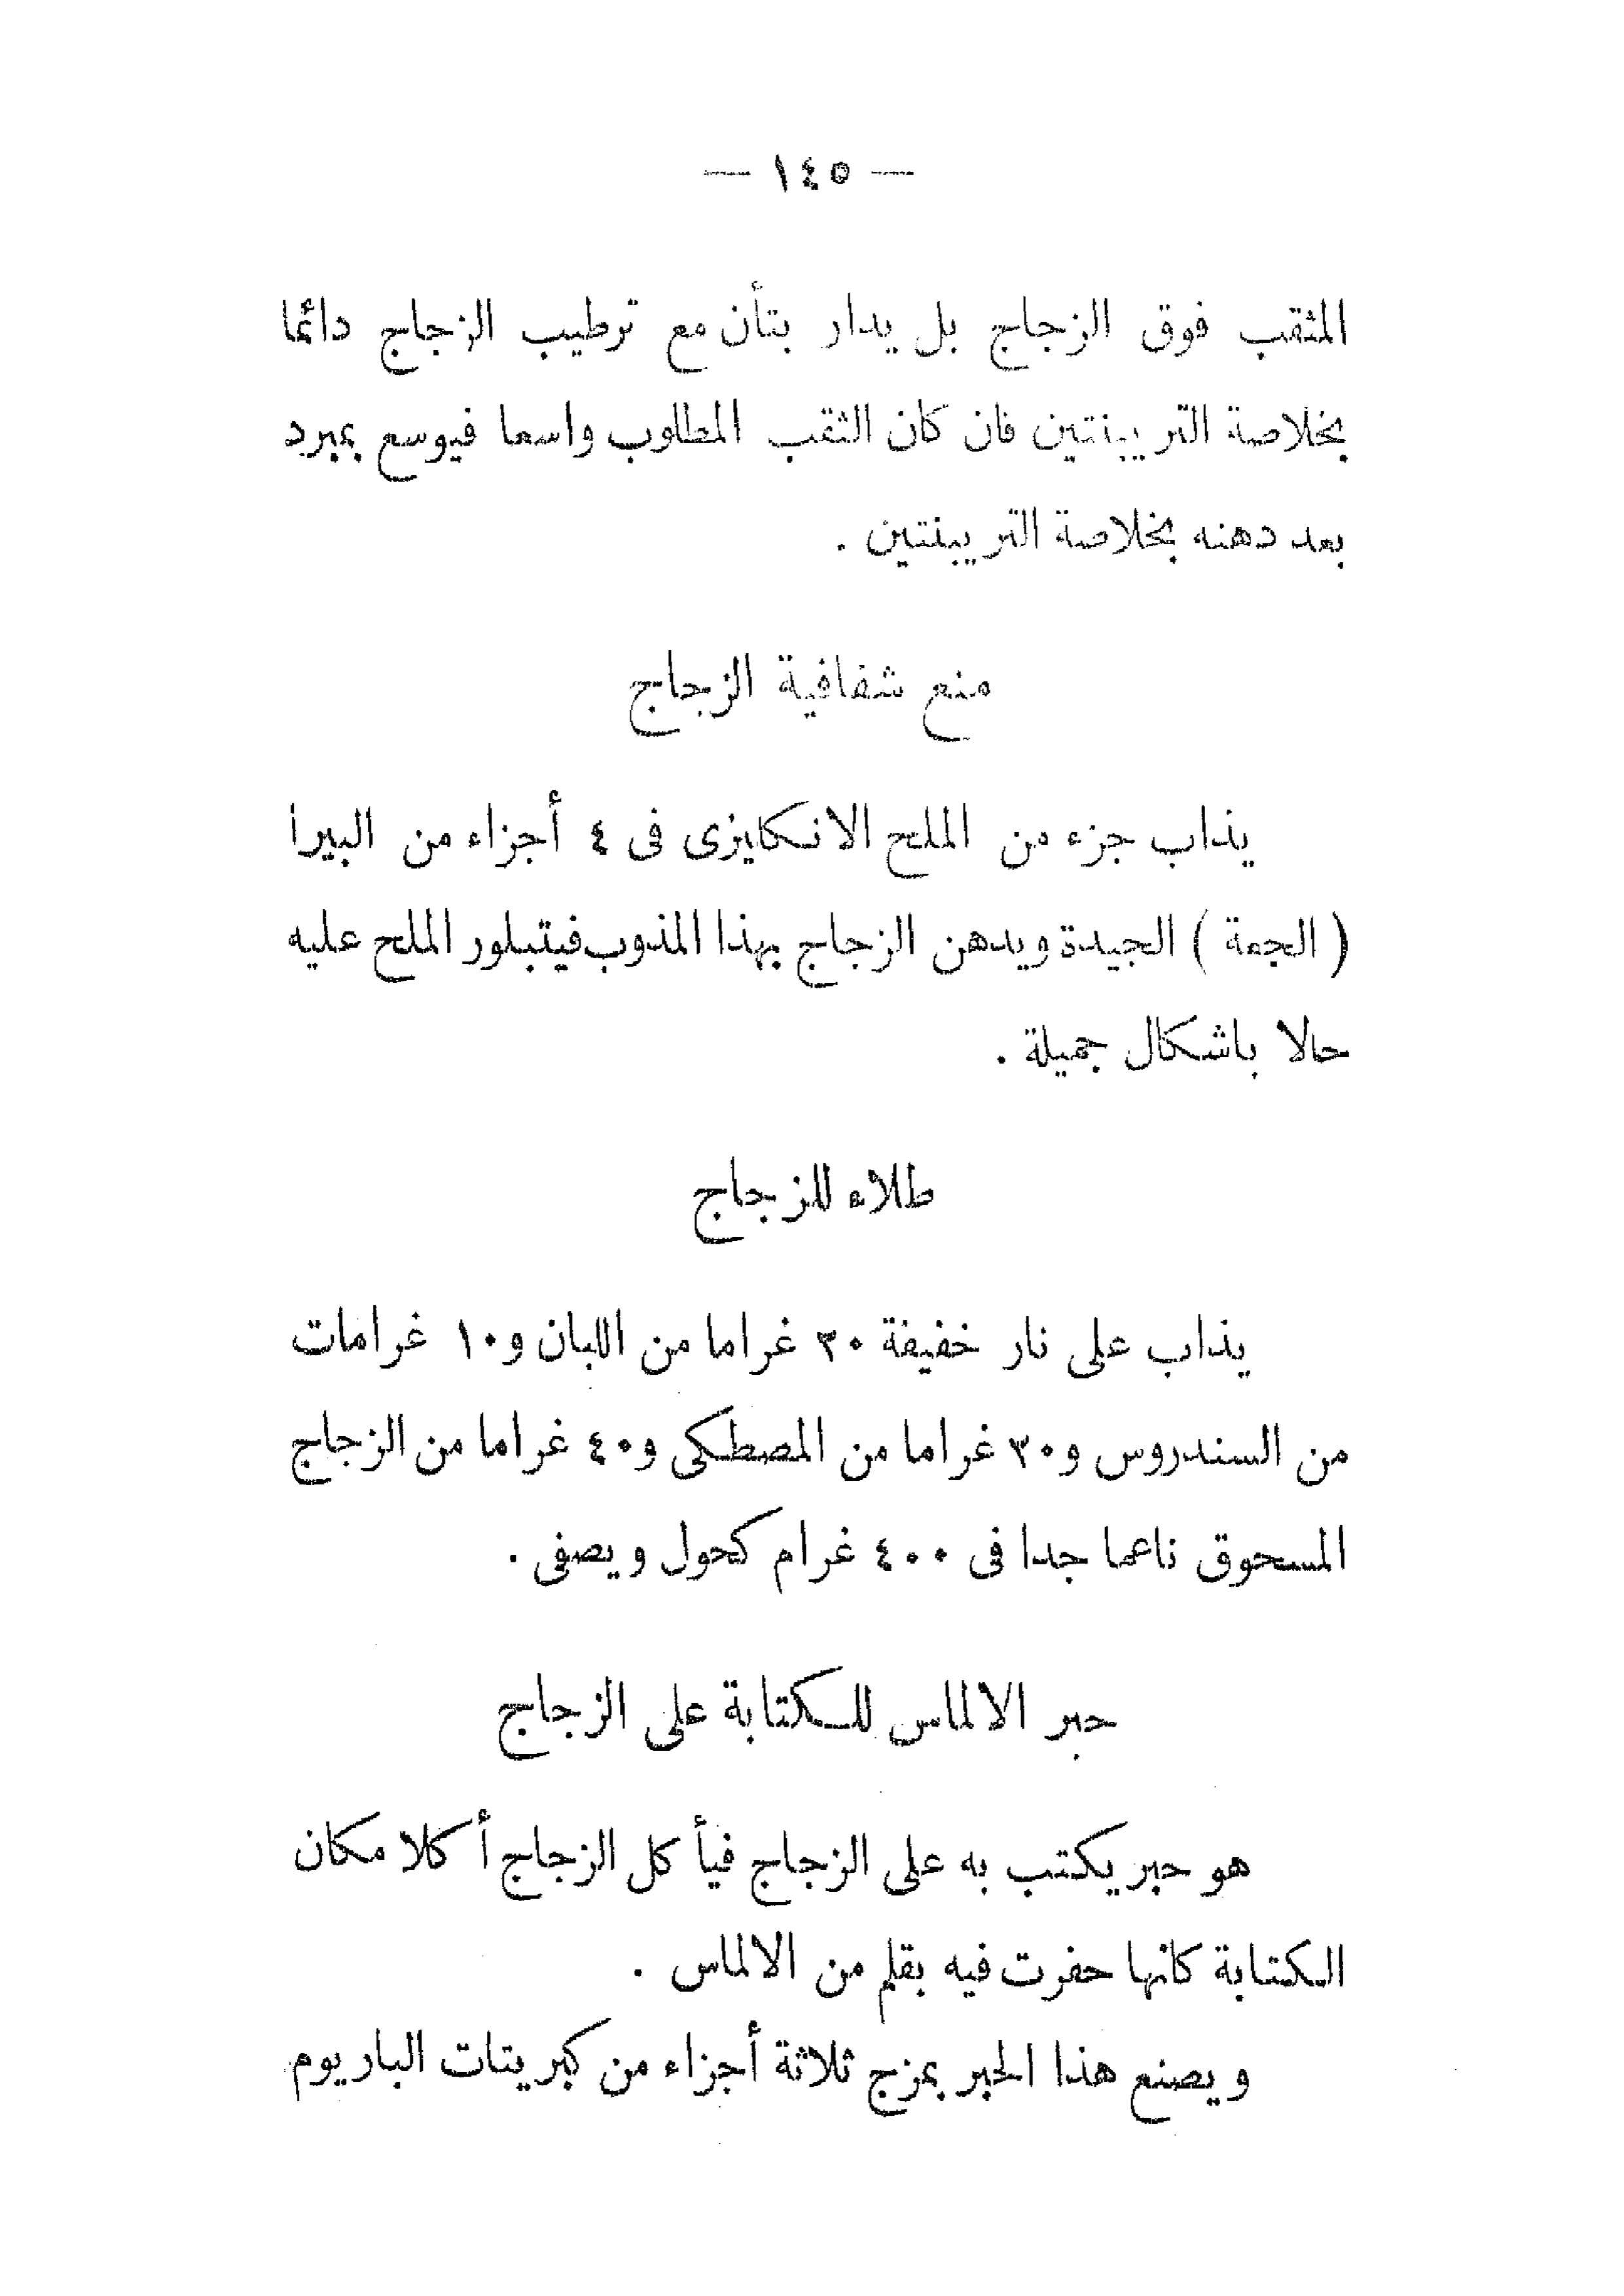 — ١٤٥ —
المثقب فوق الزجاج بل يدار بتأن مع ترطيب الزجاج دائما
بخلاصة التربينتين فان كان الثقب المطلوب واسعا فيوسع بمبرد
بعد دهنه بخلاصة التربينتين .
منع شفافية الزجاج
يذاب جزء من الملح الانكليزى فى ٤ أجزاء من البيرا
( الجعة ) الجيدة ويدهن الزجاج بهذا المذوب فيتبلور الملح عليه
حالا باشكال جميلة .
طلاء للزجاج
يذاب على نار خفيفة ٣٠ غراما من اللبان و١٠ غرامات
من السندروس و٣٠ غراما من المصطكى و٤٠ غراما من الزجاج
المسحوق ناعما جدا فى ٤٠٠ غرام كحول ويصفى .
حبر الالماس للكتابة على الزجاج
هو حبر يكتب به على الزجاج فيأكل الزجاج أكلا مكان
الكتابة كانها حفرت فيه بقلم من الالماس .
ويصنع هذا الحبر بمزج ثلاثة أجزاء من كبريتات الباريوم